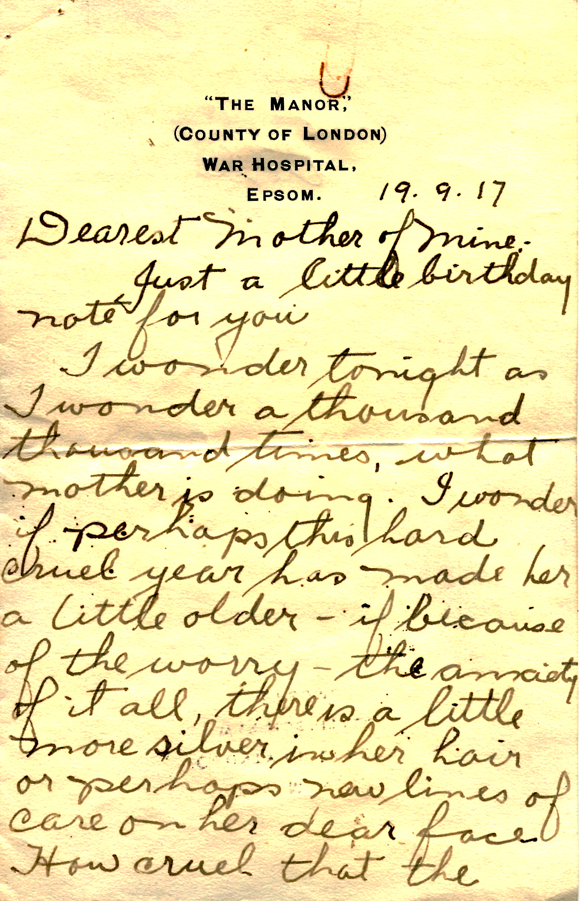 "THE MANOR,"
(COUNTY OF LONDON)
WAR HOSPITAL,
EPSOM.
19.9.17
Dearest Mother of Mine:-
Just a little birthday
note for you
I wonder tonight as
I wonder a thousand
thousand times, what
mother is doing. I wonder
if perhaps this hard
cruel year has made her
a little older - if because
of the worry - the anxiety
of it all, there is a little
more silver in her hair
or perhaps new lines of
care on her dear face
How cruel that the